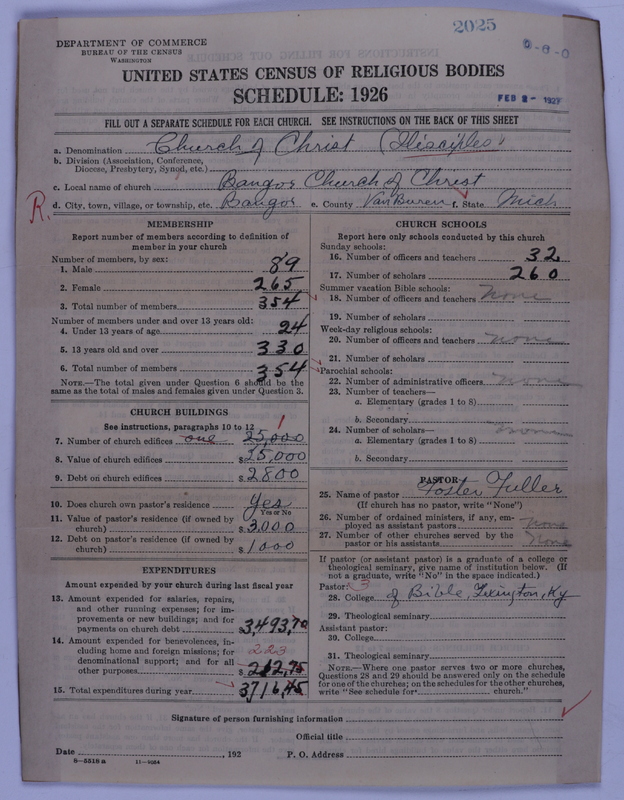 2025
0-8-0
DEPARTMENT OF COMMERCE
BUREAU OF THE CENSUS
WASHINGTON
UNITED STATES CENSUS OF RELIGIOUS BODIES
SCHEDULE: 1926
FEB 2- 1927
FILL OUT A SEPARATE SCHEDULE FOR EACH CHURCH. SEE INSTRUCTIONS ON THE BACK OF THIS SHEET
a. Denomination Church of Christ (Disciples)
b. Division (Association, Conference, Diocese, Presbytery, Synod, etc.)
c. Local name of church Bangor Church of Christ
R. d. City, town, village, or township, etc. Bangor e. County Van Buren f. State Mich
MEMBERSHIP
Report number of members according to definition of
member in your church
Number of members, by sex:
1. Male 89
2. Female 265
3. Total number of members 354
Number of members under and over 13 years old:
4. Under 13 years of age 24
5. 13 years old and over 330
6. Total number of members 354
NOTE.—The total given under Question 6 should be the
same as the total of males and females given under Question 3.
CHURCH BUILDINGS
See instructions, paragraphs 10 to 12
7. Number of church edifices one 25,000 1
8. Value of church edifices $25,000
9. Debt on church edifices $2800
10. Does church own pastor's residence Yes
Yes or No
11. Value of pastor's residence (if owned by
church) $3,000
12. Debt on pastor's residence (if owned by
church) $1000
EXPENDITURES
Amount expended by your church during last fiscal year
13. Amount expended for salaries, repairs,
and other running expenses; for im-
provements or new buildings; and for
payments on church debt 3,493,70
14. Amount expended for benevolences, in-
cluding home and foreign missions; for 223
denominational support; and for all
other purposes $ 212,75
15. Total expenditures during year 3716,45
CHURCH SCHOOLS
Report here only schools conducted by this church
Sunday schools:
16. Number of officers and teachers 32
17. Number of scholars 260
Summer vacation Bible schools:
18. Number of officers and teachers None
19. Number of scholars
Week-day religious schools:
20. Number of officers and teachers none
21. Number of scholars
Parochial schools:
22. Number of administrative officers none
23. Number of teachers—
a. Elementary (grades 1 to 8)
b. Secondary
24. Number of scholars— none
a. Elementary (grades 1 to 8)
b. Secondary
PASTOR
25. Name of pastor Foster Fuller
(If church has no pastor, write "None")
26. Number of ordained ministers, if any, em-
ployed as assistant pastors None
27. Number of other churches served by the
pastor or his assistants None
If pastor (or assistant pastor) is a graduate of a college or
theological seminary, give name of institution below. (If
not a graduate, write "No" in the space indicated.)
Pastor: 3
28. College of Bible, Lexington, Ky
29. Theological seminary
Assistant pastor:
30. College
31. Theological seminary
NOTE.—Where one pastor serves two or more churches,
Questions 28 and 29 should be answered only on the schedule
for one of the churches; on the schedules for the other churches,
write "See schedule for church."
Signature of person furnishing information
Official title
Date , 192 P. O. Address
8-5518a 11-9084